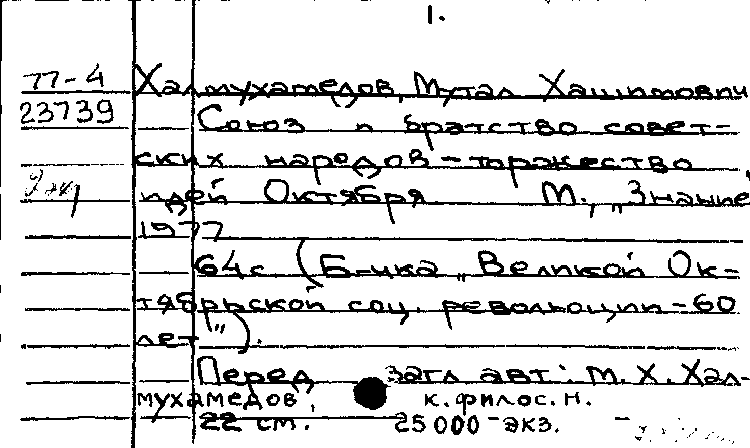 1.
77-4 Халмухамедов, Мутал Хашимович
23739 Союз и братство совет-
ских народов - торжество
2 экз идей Октября М., „Знание,
1977
64 с (Б-ика „Великой Ок-
тябрьской соц. революции - 60
лет").
Перед загл авт: М. Х. Хал-
мухамедов, к.филос.н.
22 см. 25000 экз.